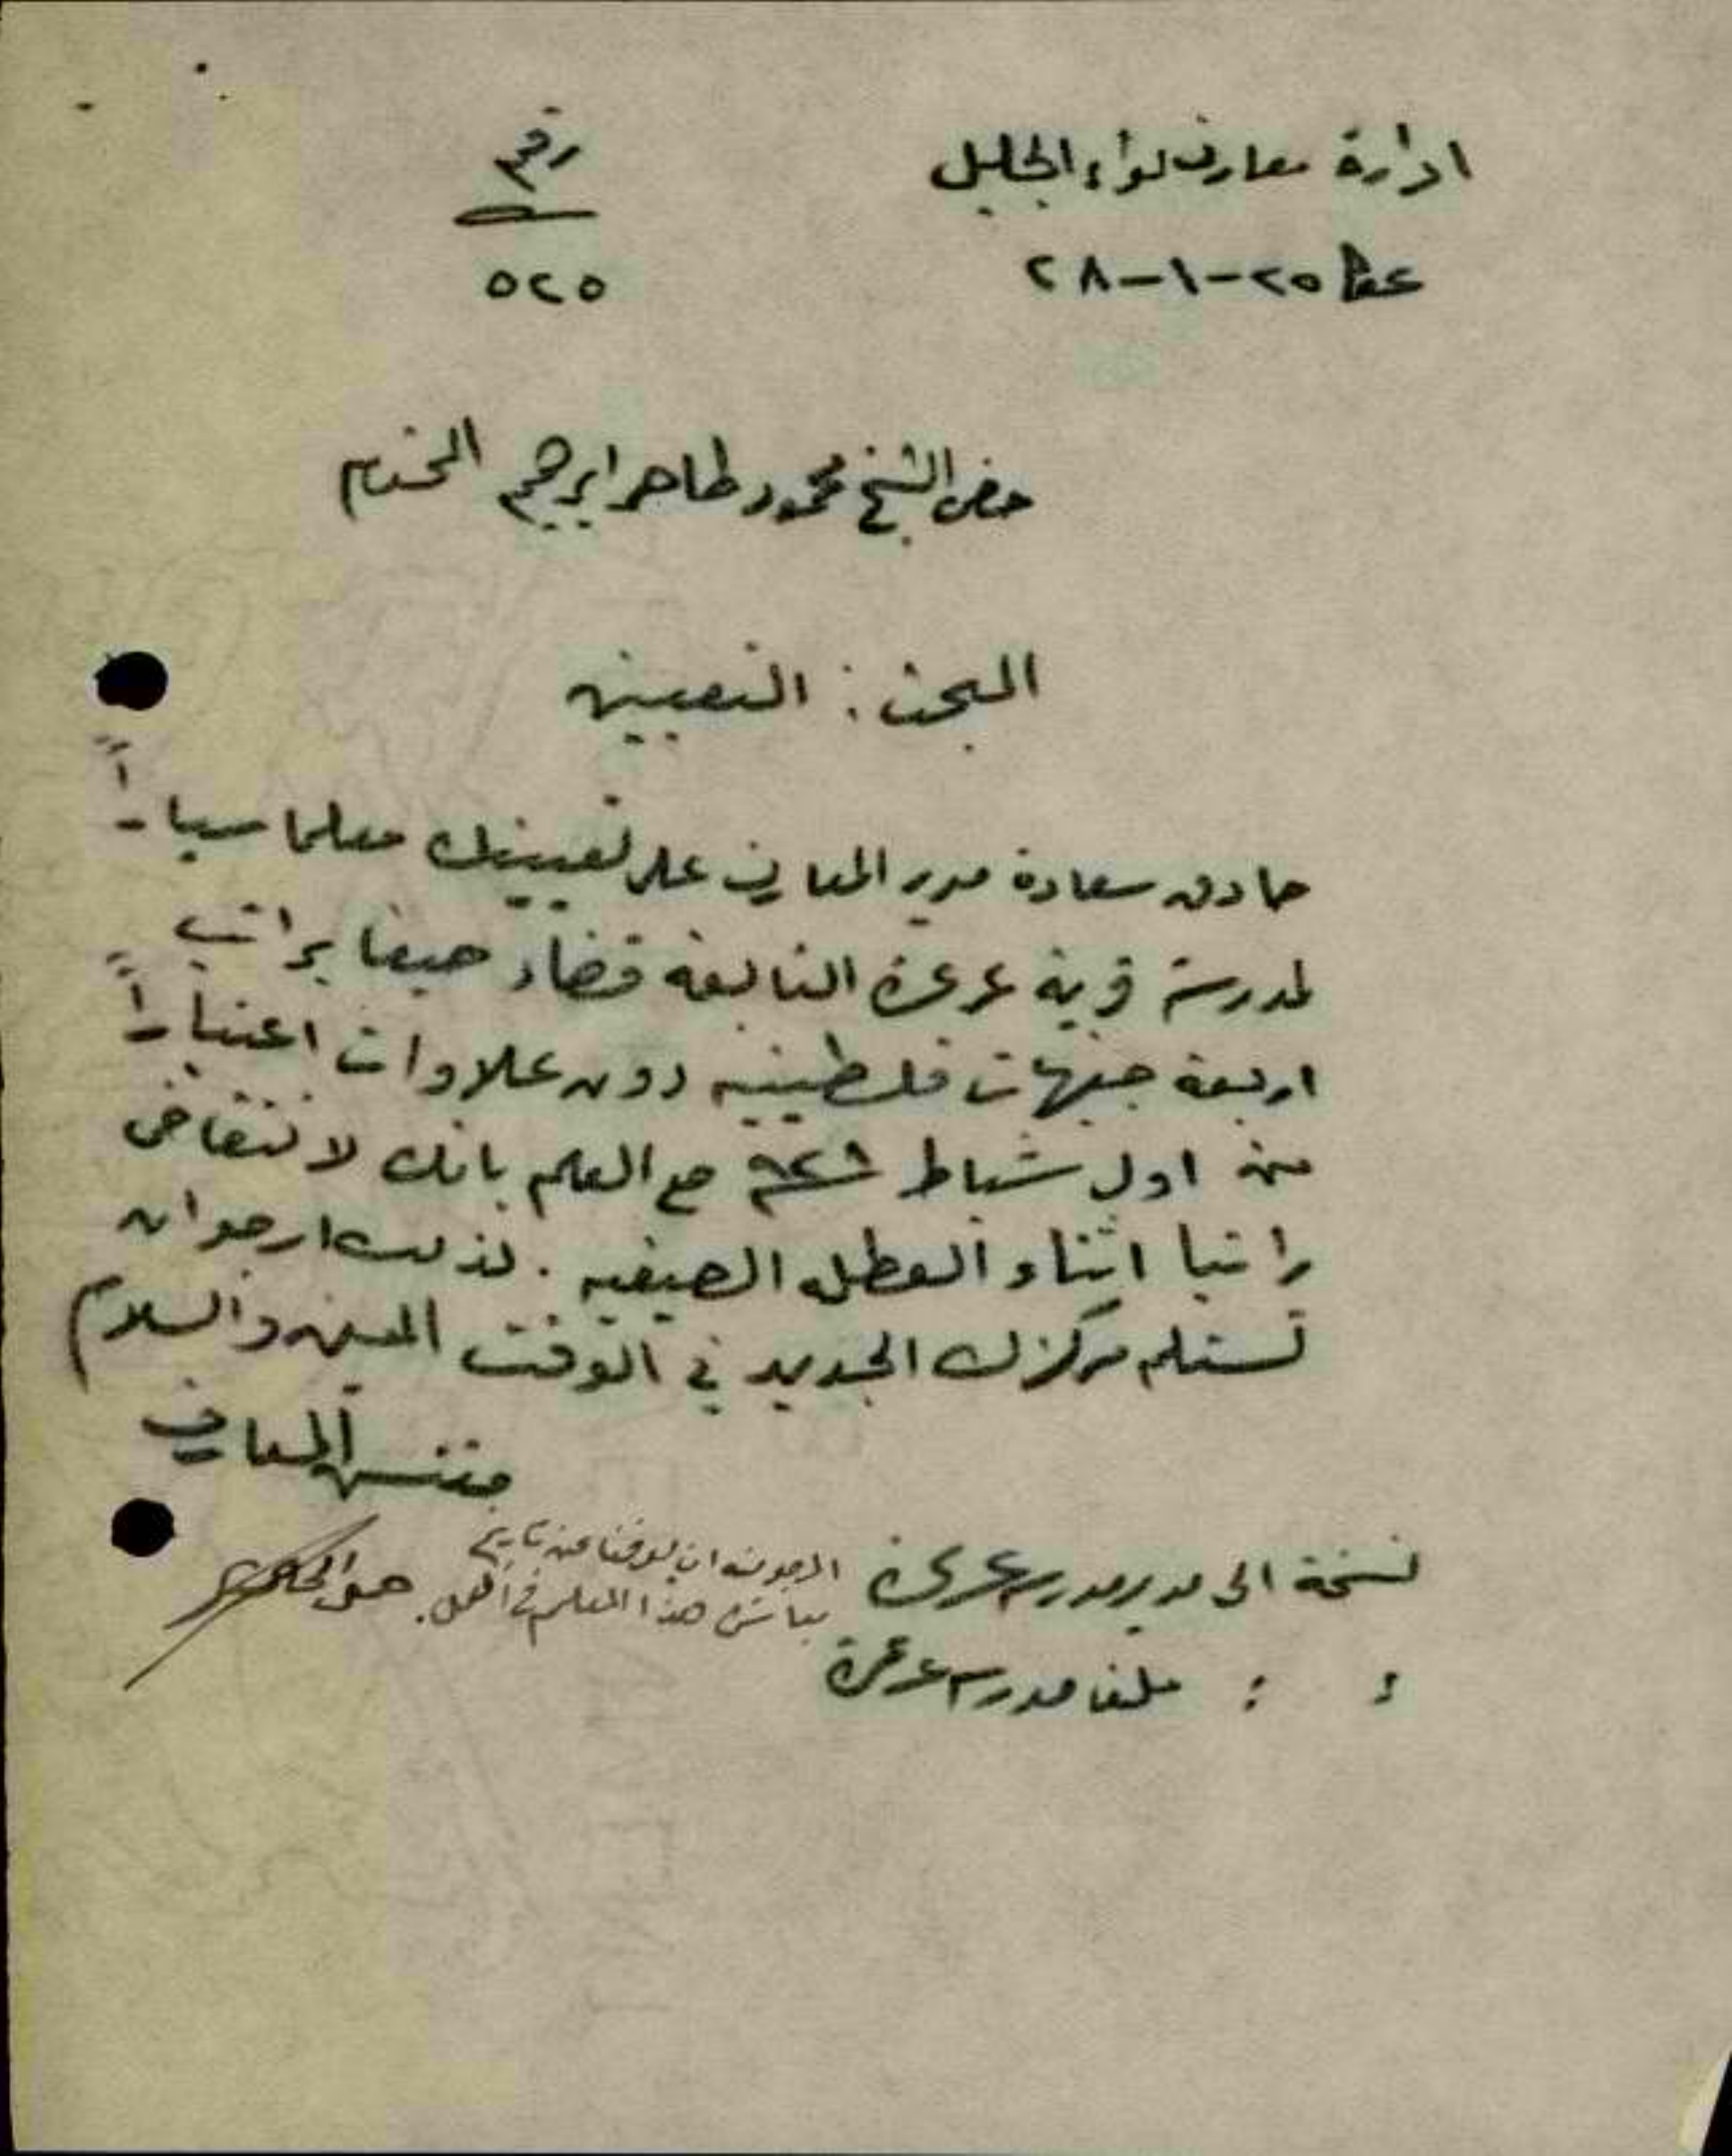 ادارة معارف لواء الجليل
رقم
عكا ٢٥-١-٢٨
٥٢٥
حضرة الشيخ محمود طاهر ابرهيم المحترم
البحث: التعيين
صادق سعادة مدير المعارف على تعيينك معلما سياراً
لمدرسة قرية عرعرة التابعة قضاء حيفا براتب
اربعة جنيهات فلسطينيه دون علاوات اعتباراً
من اول شباط ٩٢٨ مع العلم بانك لا تتقاضى
راتبا اثناء العطل الصيفيه. لذلك ارجو ان
تستلم مركزك الجديد في الوقت المعين والسلام
مفتش المعارف
نسخة الى مدير مدرسة عرعرة
المرجو منه ان يعرفنا عن تاريخ
مباشرة هذا المعلم في العمل.
: : ملف مدرسة عرعرة